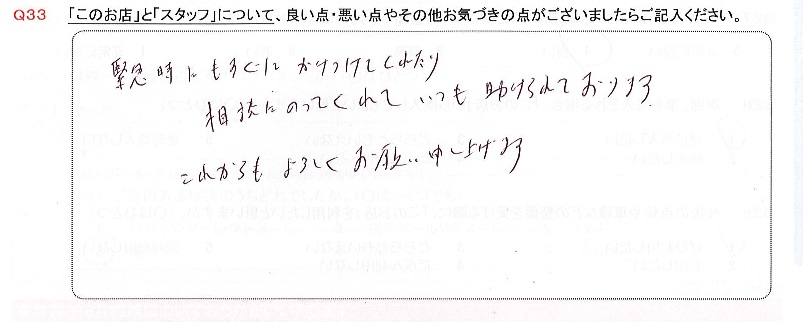 Q33 「このお店」と「スタッフ」について、良い点・悪い点やその他お気づきの点がございましたらご記入ください。
緊急時にもすぐに かけつけてくれたり
相談にのってくれて いつも 助けられております
これからも よろしく お願い 申し上げます